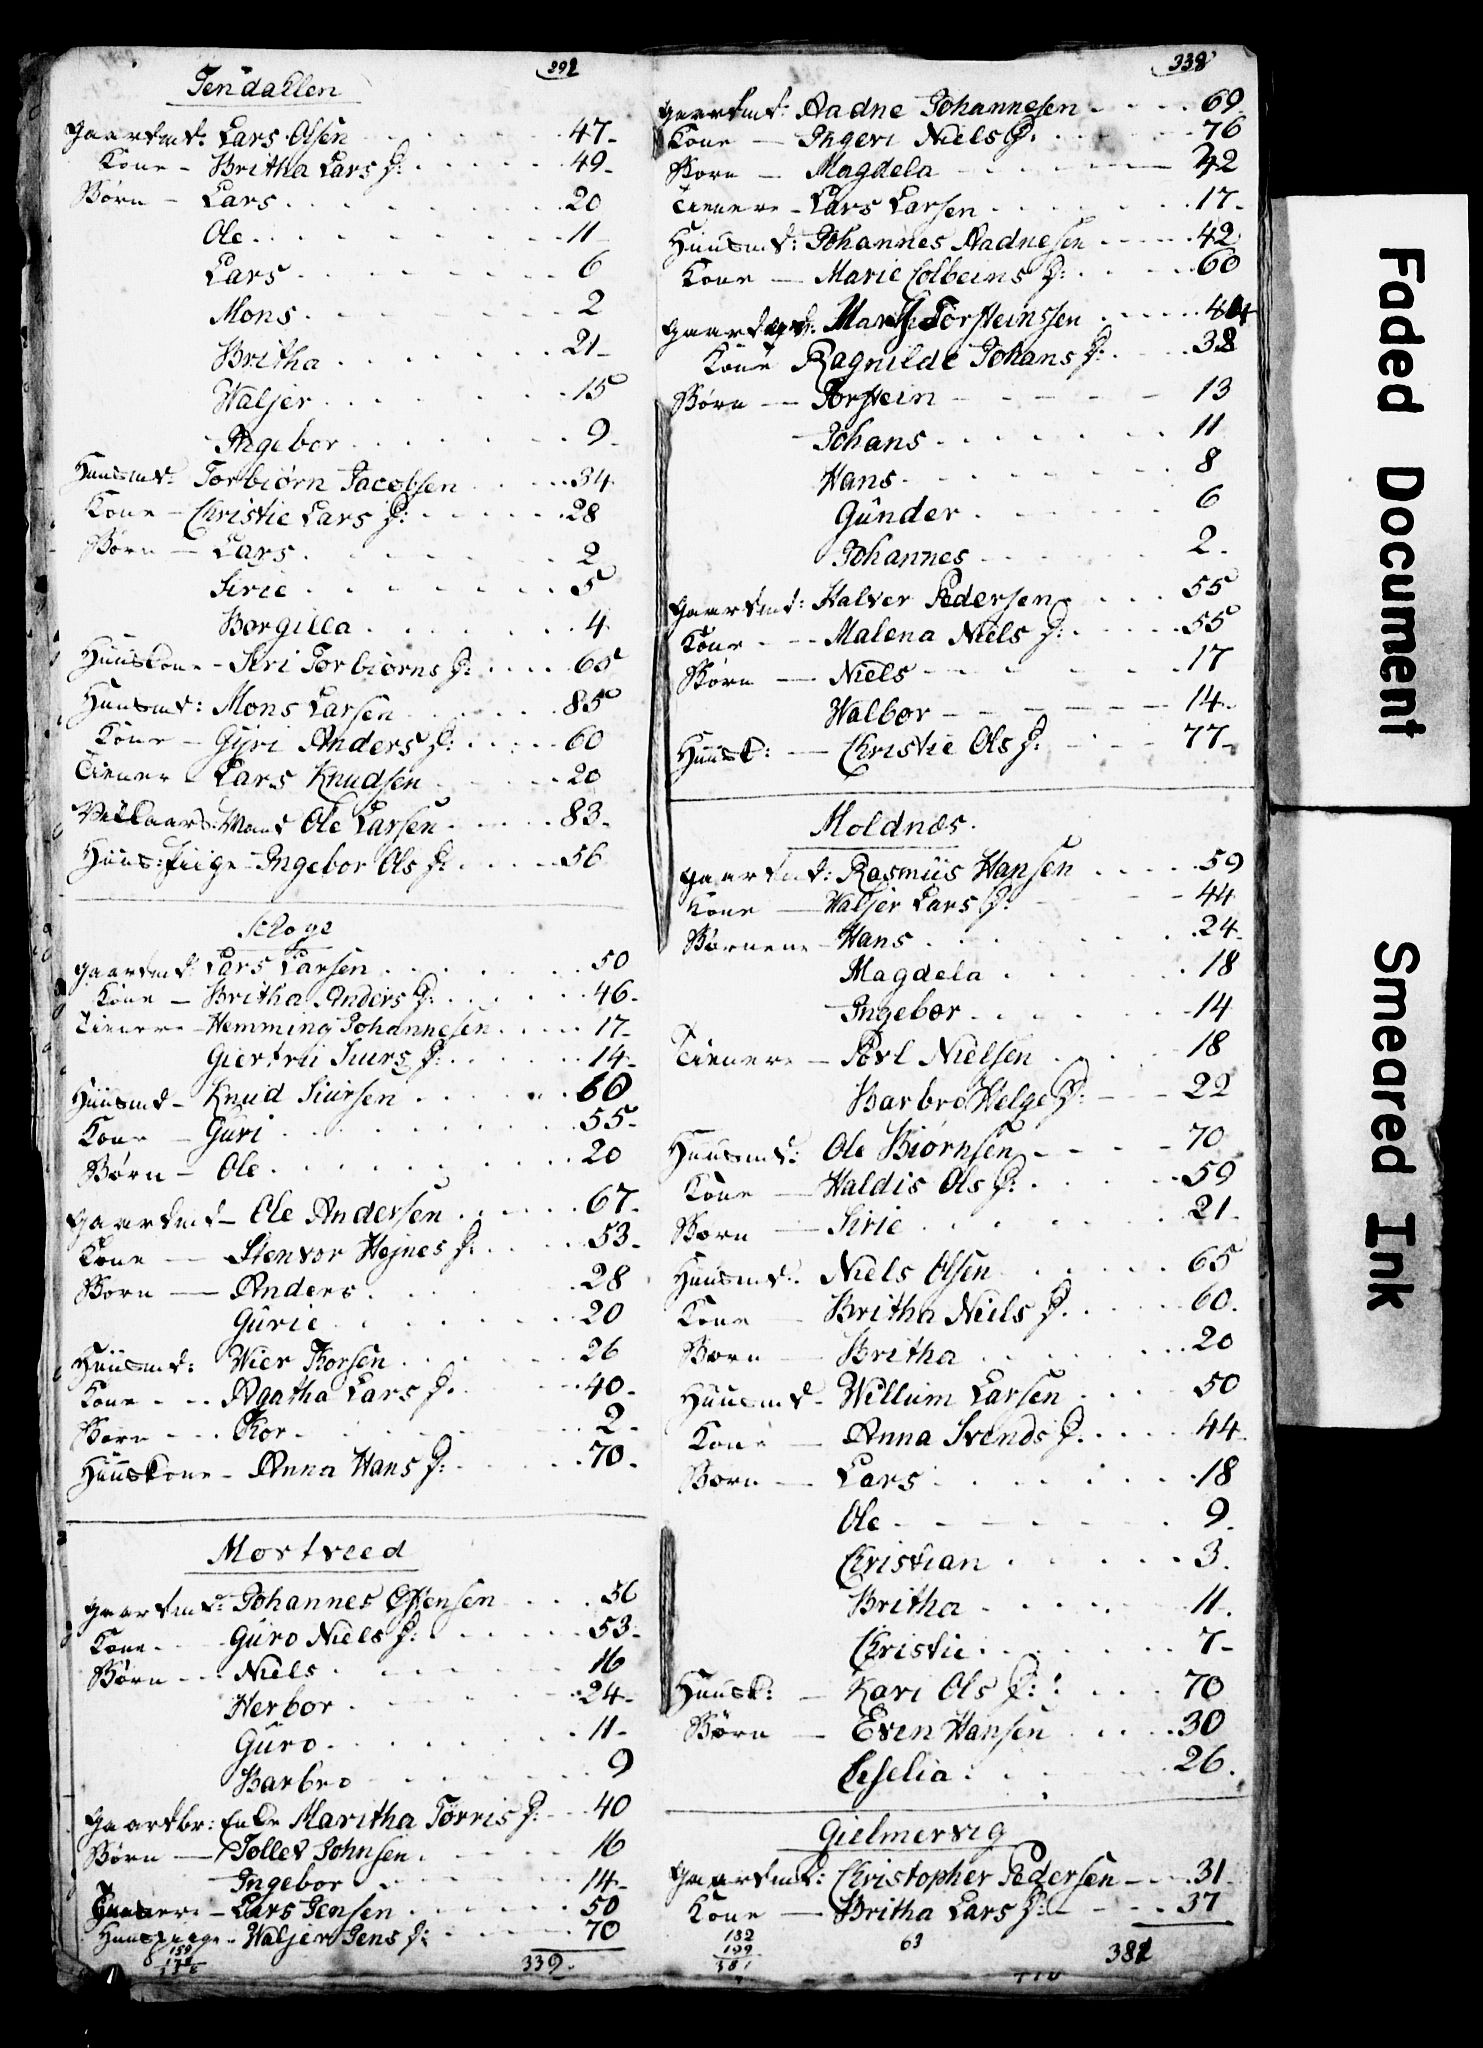 292
Tendallen
Gaardmd: Lars Olsen 47
Kone - Britha Lars D: 49
Børn - Lars 20
Ole 11
Lars 6
Mons 2
Britha 21
Waljer 15
Ingebor 9
Huusmd: Torbiørn Jacobsen 34
Kone - Christie Lars D: 28
Børn - Lars 2
Sirie 5
Borgilla 4
Huuskone - Siri Torbiørns D: 65
Huusmd: Mons Larsen 85
Kone - Gÿri Anders D: 60
Tiener - Lars Knudsen 20
Mand Ole Larsen 83
Huus: Piige - Ingebor Ols D: 56
Gaardmd: Lars Larsen 50
Kone - Britha Anders D: 46
Tienere - Hemming Johannesen 17
Giertrü Siurs D: 14
Huusmd - Knud Siursen 60
Kone - Gùri 55
Børn - Ole 20
Gaardmd - Ole Andersen 67
Kone - Stenvor Hejnes D: 53
Børn - Anders 28
Gùrie 20
Huusmd: Wier Thorsen 26
Kone - Agatha Lars D. 40
Børn - Thor 2
Huuskone - Anna Hans D: 70
Mortveed
Gaardmd: Johannes Offensen 56
Kone - Gùro Niels D: 53
Børn - Niels 16
Herbor 24
Gùro 11
Barbro 9
Gaardbr: Enke Maritha Tørris D: 40
Børn - Tollev Johnsen 16
Ingebor 14
Lars Jensen 50
Huuspiege - Waljer Jens D: 70
339
338
Gaardmd: Aadne Johannesen 69
Kone - Ingeri Niels D: 76
Børn - Magdela 42
Tienere - Lars Larsen 17
Huusmd: Johannes Aadnesen 42
Kone - Marie Colbeins D: 60
Torsteinssen 44
Kone Ragnilde Johans D: 38
Børn - Torstein 13
Johans 11
Hans 8
Gùnder 6
Johannes 2
Gaardmd: Halver Pedersen 55
Kone - Malena Niels D: 55
Børn - Niels 17
Walbor 14
Huusk: - Christie Ols D: 77
Moldnæs.
Gaardmd: Rasmùs Hansen 59
Kone - Waljer Lars D: 44
Børnene - Hans 24
Magdela 18
Ingebor 14
Tienere - Povl Nielsen 18
Barbro Helge D: 22
Huusmd: Ole Biørnsen 70
Kone - Waldis Ols D: 59
Børn - Sirie 21
Huusmd: Niels Olsen 65
Kone - Britha Niels D. 60
Børn - Britha 20
Huusmd - Willum Larsen 50
Kone - Anna Svends D. 44
Børn - Lars 18
Ole 9
Christian 3
Britha 11
Christie 7
Huusk: - Kari Ols D: 70
Børn - Even Hansen 30
Ceselia 26
Gielmervig
Gaardmd: Christopher Pedersen 31
Kone - Britha Lars D: 37
182
199
381
63
381
Faded Document
Smeared Ink